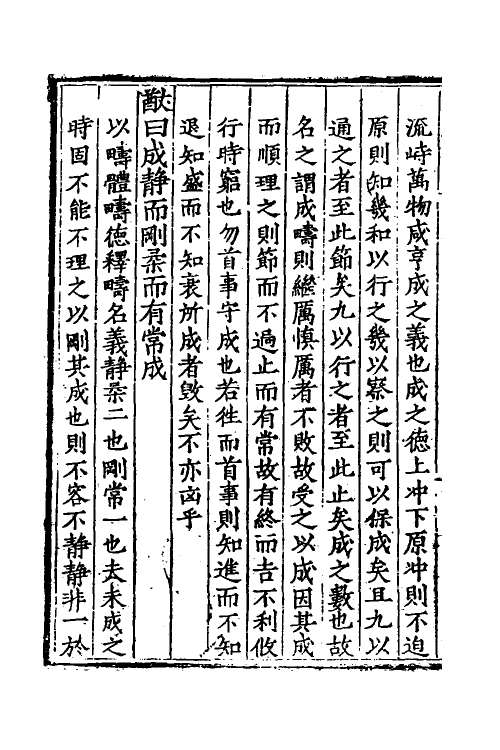 流峙萬物咸亨成之義也成之德上冲下原冲則不迫
原則知幾和以行之幾以察之則可以保成矣且九以
通之者至此節矣九以行之者至此止矣成之數也故
名之謂成疇則繼厲慎厲者不敗故受之以成因其成
而順理之則節而不過止而有常故有終而吉不利攸
行時窮也勿首事守成也若徃而首事則知進而不知
退知盛而不知衰所成者毁矣不亦凶乎
猷曰成静而剛柔而有常成
以疇體疇德釋疇名義静柔二也剛常一也夫未成之
時固不能不理之以剛其成也則不容不静静非一於